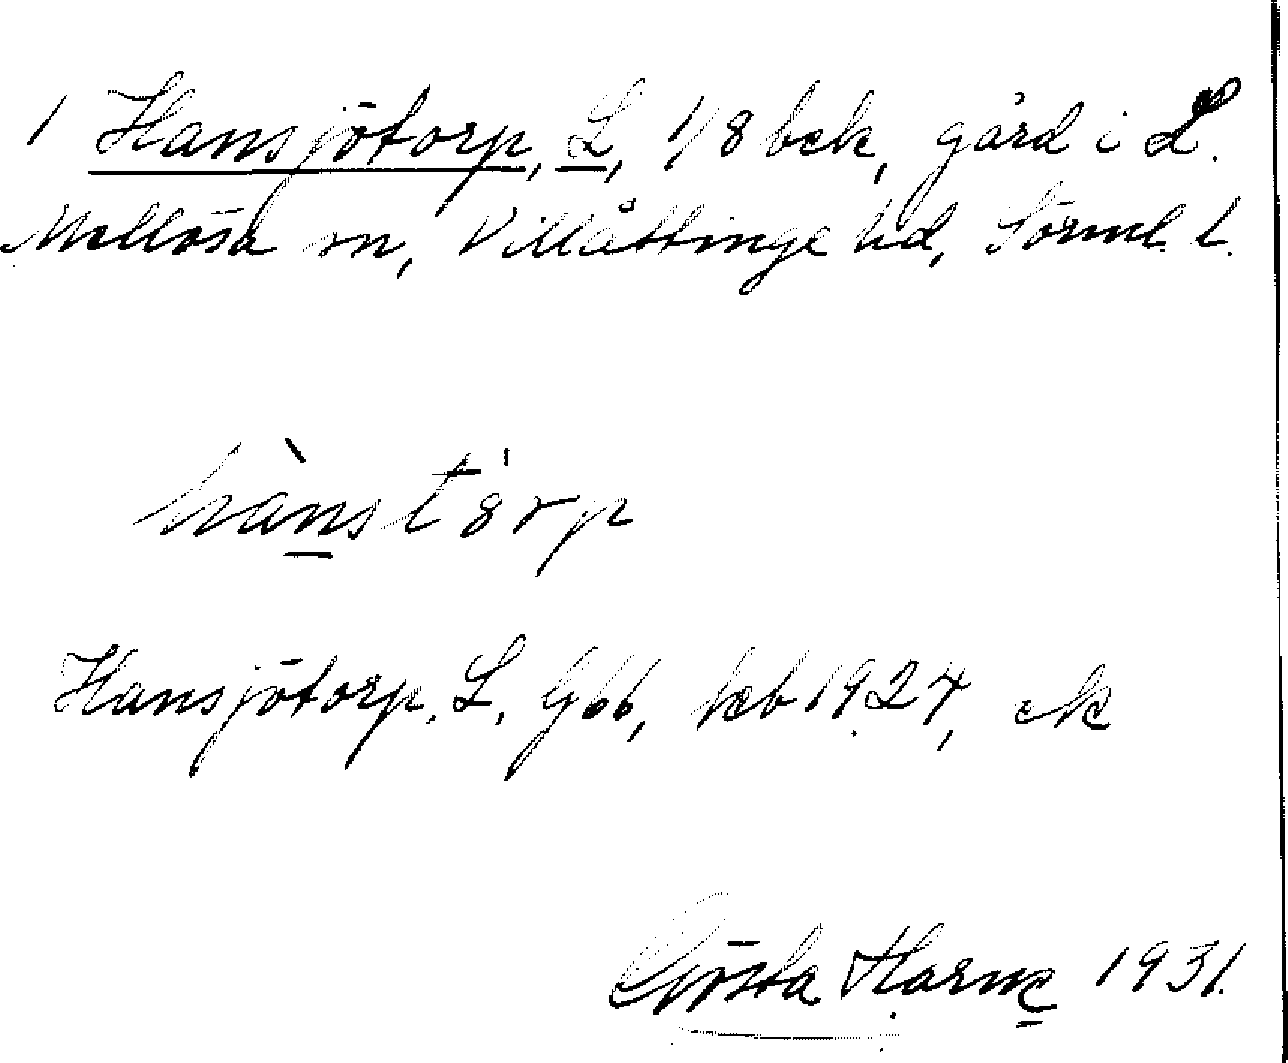 1 Hansjötorp, L, 1/8 bek, gård i L.
Mellösa sn, Villåttinge hd, Sörml. l.
hànstórp
Hansjötorp, L, Gbb, keb 1924, ek
Gösta Harne 1931.